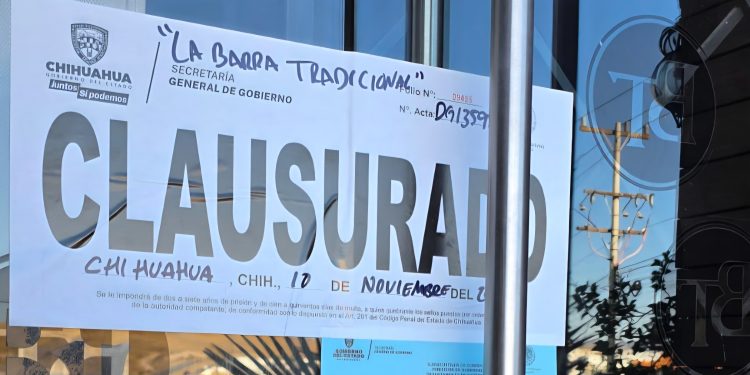 "LA BARRA TRADICIONAL"
CHIHUAHUA
GOBIERNO DEL ESTADO
Juntos Sí podemos
SECRETARÍA
GENERAL DE GOBIERNO
Folio N°:
N°. Acta: DG1359
CLAUSURADO
CHIHUAHUA, CHIH., 10 DE NOVIEMBRE DEL 2
Se le impondrá de dos a siete años de prisión y de cien a quinientos días de multa, a quien quebrante los sellos puestos por orden
de la autoridad competente, de conformidad con lo dispuesto en el Art. 291 del Código Penal del Estado de Chihuahua.